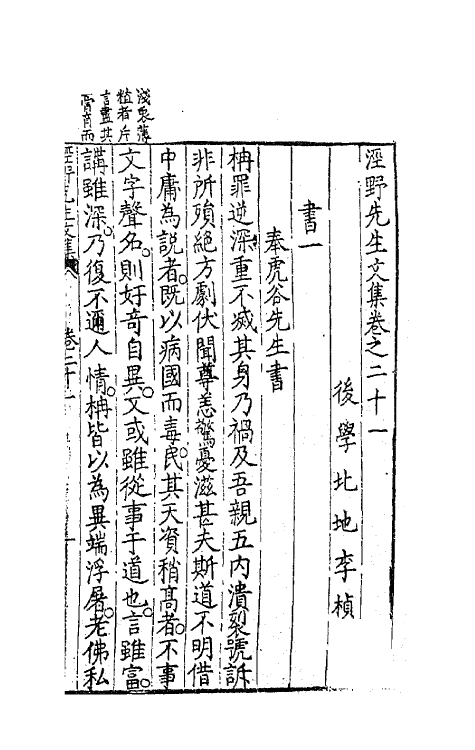 涇野先生文集卷之二十一
後學北地李楨
書一
奉虎谷先生書
柟罪逆深重不滅其身乃禍及吾親五内潰裂號訴
非所殞絕方劇伏聞尊恙驚憂滋甚夫斯道不明借
中庸為説者既以病國而毒民其天資稍髙者不事
文字聲名則好竒自異又或雖從事于道也言雖富
講雖深乃復不邇人情柟皆以為異端浮屠老佛私
涇野先生文集 卷二十一
淺衷薄
植者斤
言盡共
膏肓而